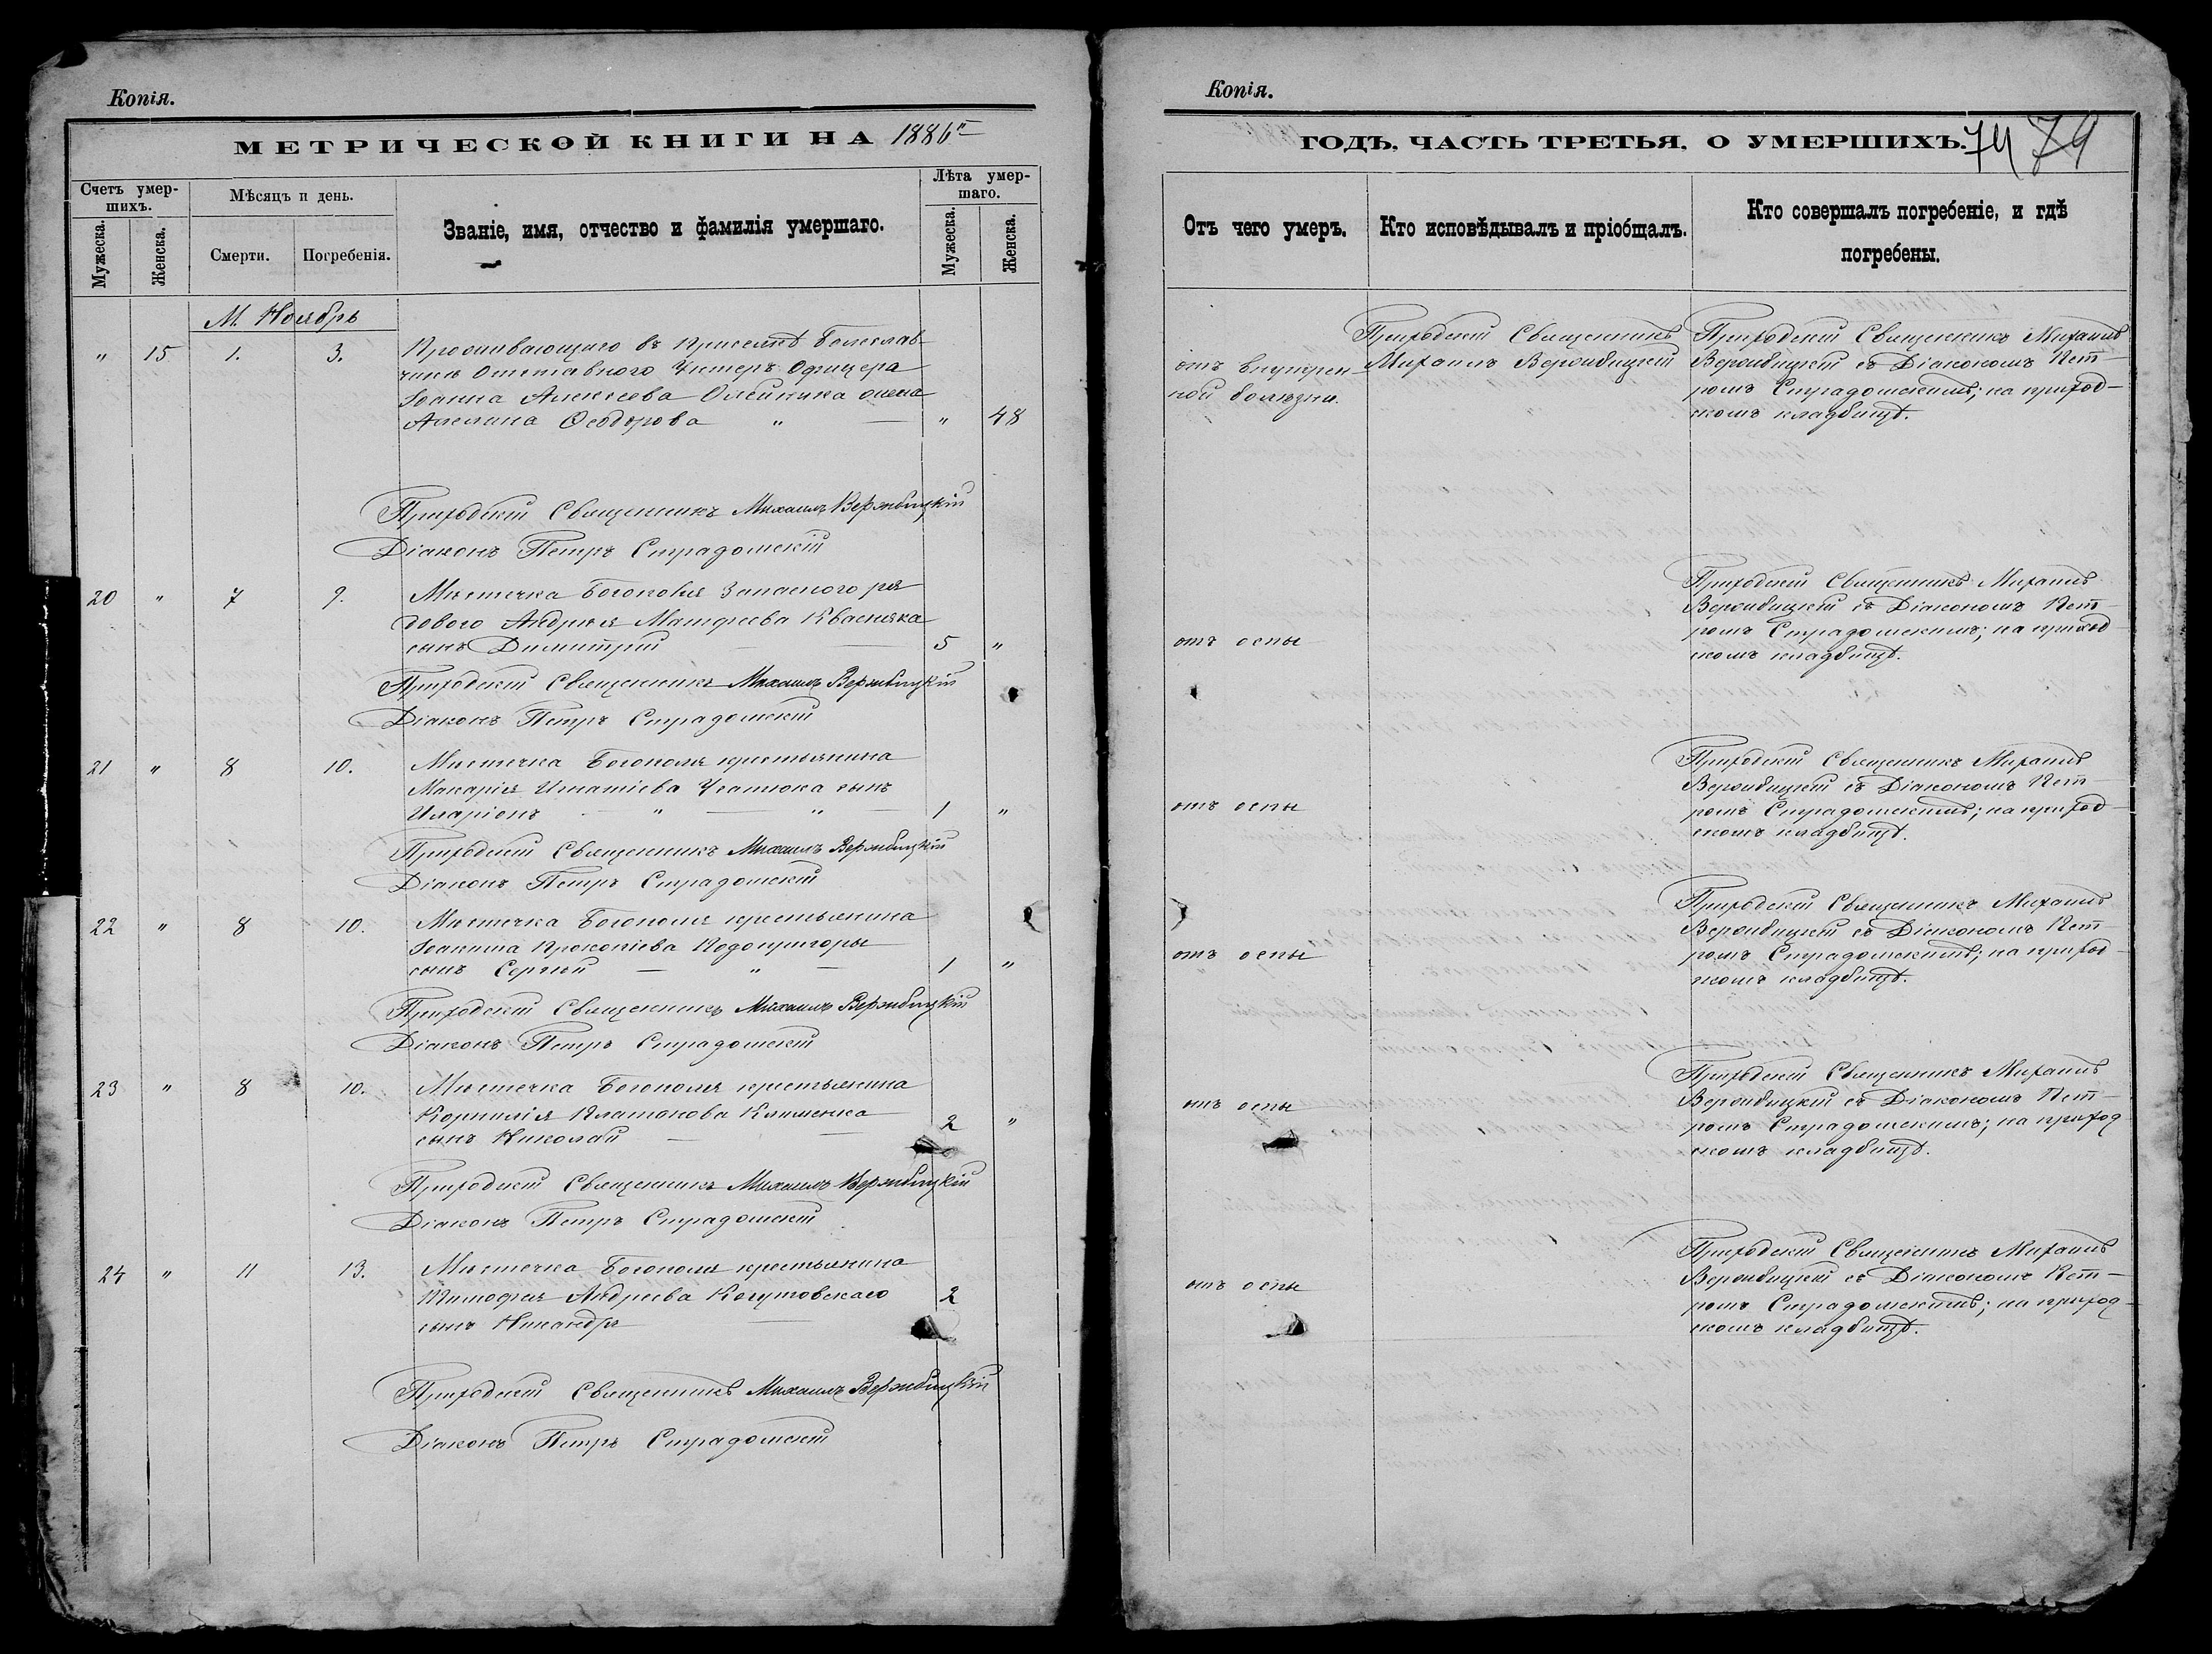 Копія.
МЕТРИЧЕСКОЙ КНИГИ НА 1886й
Счетъ умер-
шихъ.
Мѣсяцъ и день.
Званіе, имя, отчество и фамилія умершаго.
Лѣта умер-
шаго.
Мужеска.
Женска.
Смерти.
Погребенія.
Мужеска.
Женска.
М. Ноябрь
" 15 1. 3. Проживающаго въ Приселкѣ Болеслав-
чикѣ Отставного Унтеръ Офицера
Іоанна Алексѣева Олейника жена
Акелина Ѳеодорова " — " 48
Приходскій Священникъ Михаилъ Вержбицкій
Діаконъ Петръ Страдомскій
20 " 7 9. Мѣстечка Богополя Запасного ря-
дового Андрея Матфеева Квасняка
сынъ Димитрій — — 5 "
Приходскій Священникъ Михаилъ Вержбицкій
Діаконъ Петръ Страдомскій
21 " 8 10. Мѣстечка Богополя крестьянина
Макарія Игнатіева сынъ
Иларіонъ — " — " 1 "
Приходскій Священникъ Михаилъ Вержбицкій
Діаконъ Петръ Страдомскій
22 " 8 10. Мѣстечка Богополя крестьянина
Іоанна Прокопіева Подопригоры
сынъ Сергій — " — 1 "
Приходскій Священникъ Михаилъ Вержбицкій
Діаконъ Петръ Страдомскій
23 " 8 10. Мѣстечка Богополя крестьянина
Корнилія Платонова Клименка
сынъ Николай — — 2 "
Приходскій Священникъ Михаилъ Вержбицкій
Діаконъ Петръ Страдомскій
24 " 11 13. Мѣстечка Богополя крестьянина
Тимофея Андреева Когутовскаго 2
сынъ Никандръ —
Приходскій Священникъ Михаилъ Вержбицкій
Діаконъ Петръ Страдомскій
Копія.
ГОДЪ, ЧАСТЬ ТРЕТЬЯ, О УМЕРШИХЪ. 74 79
Отъ чего умеръ.
Кто исповѣдывалъ и пріобщалъ.
Кто совершалъ погребеніе, и гдѣ
погребены.
отъ внутрен-
ной болѣзни.
Приходскій Священникъ
Михаилъ Вержбицкій
Приходскій Священникъ Михаилъ
Вержбицкій съ Діакономъ Пет-
ромъ Страдомскимъ; на приход-
скомъ кладбищѣ.
отъ оспы
Приходскій Священникъ Михаилъ
Вержбицкій съ Діакономъ Пет-
ромъ Страдомскимъ; на приход-
скомъ кладбищѣ.
отъ оспы
Приходскій Священникъ Михаилъ
Вержбицкій съ Діакономъ Пет-
ромъ Страдомскимъ; на приход-
скомъ кладбищѣ.
отъ оспы
Приходскій Священникъ Михаилъ
Вержбицкій съ Діакономъ Пет-
ромъ Страдомскимъ; на приход-
скомъ кладбищѣ.
отъ оспы
Приходскій Священникъ Михаилъ
Вержбицкій съ Діакономъ Пет-
ромъ Страдомскимъ; на приход
скомъ кладбищѣ.
отъ оспы
Приходскій Священникъ Михаилъ
Вержбицкій съ Діакономъ Пет-
ромъ Страдомскимъ; на приход-
скомъ кладбищѣ.